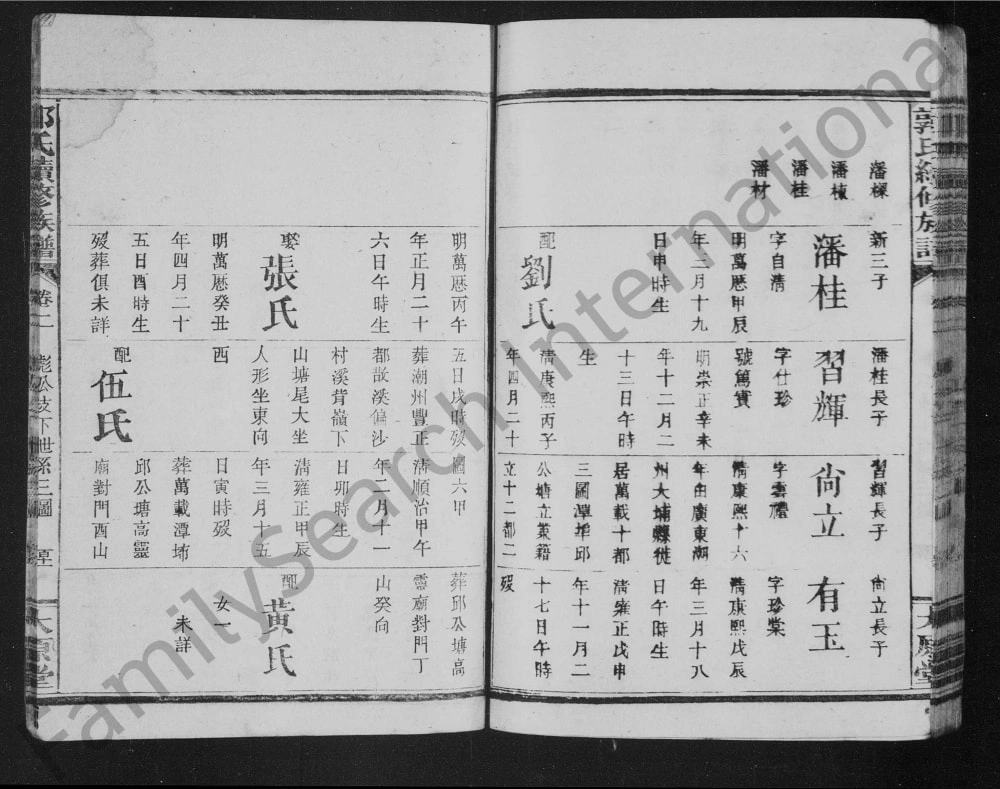 郭氏續修族譜
太原堂
潘櫟
潘棟
潘桂
潘材
新三子
潘桂
字自清
明萬曆甲辰
年二月十九
日申時生
配
劉氏
明萬曆丙午
年正月二十
六日午時生
娶
張氏
明萬曆癸丑
年四月二十
五日酉時生
歿葬俱未詳
潘桂長子
習輝
字仕珍
號篤實
明崇正辛未
年十二月二
十三日午時
生
清康熙丙子
年四月二十
五日戌時歿
葬潮州豐正
都故溪偏沙
村溪背嶺下
山塘尾大坐
人形坐東向
西
配
伍氏
習輝長子
尙立
字雲禮
清康熙十六
年由廣東潮
州大埔縣徙
居萬載十都
三圖潭埠邱
公塘立業籍
立十二都二
圖六甲
清順治甲午
年二月十一
日卯時生
清雍正甲辰
年三月十五
日寅時歿
葬萬載潭埠
邱公塘高靈
廟對門酉山
尙立長子
有玉
字珍棠
清康熙戊辰
年三月十八
日午時生
清雍正戊申
年十一月二
十七日午時
歿
葬邱公塘高
靈廟對門丁
山癸向
配
黃氏
女一
未詳
郭氏續修族譜
卷二
彪公支下世系三圖
太原堂
FamilySearch International